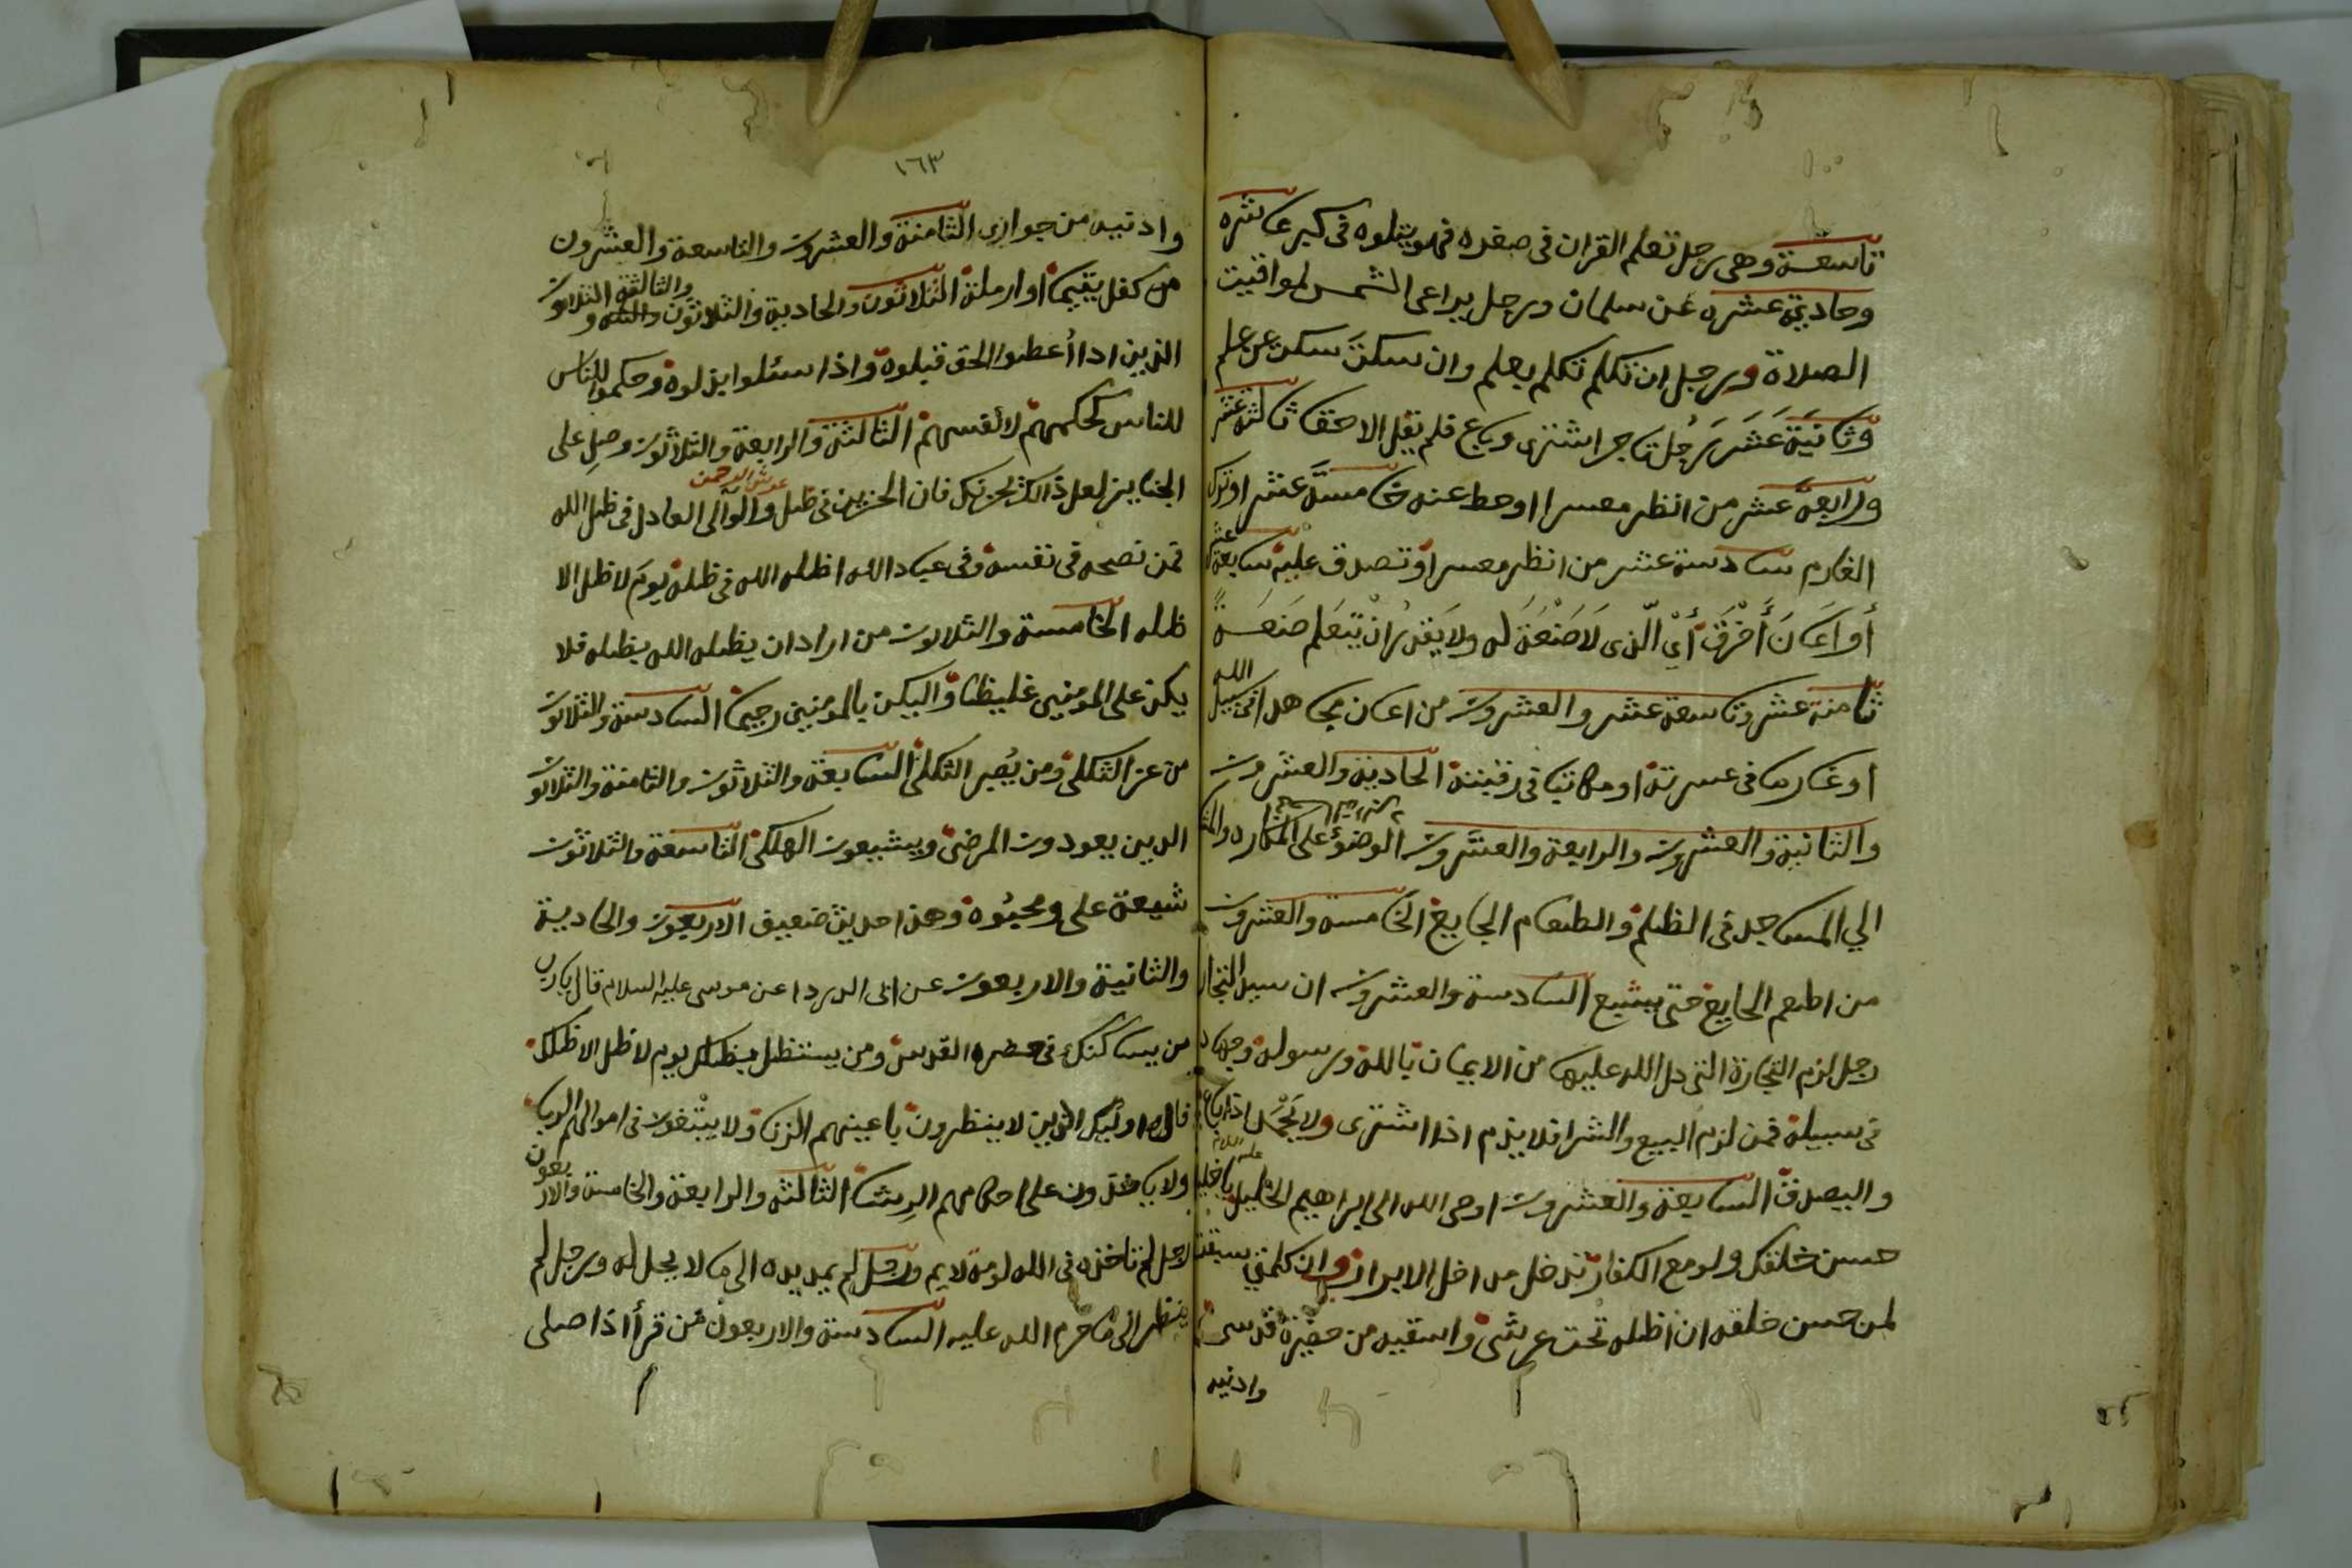 تاسعة وهى رجل تعلم القران فى صغره فهو يتلوه فى كبر عاشره
وحادية عشره عن سلمان ورجل يراعى الشمس لمواقيت
الصلاة ورجل ان تكلم تكلم بعلم وان سكت سكت عن علم
وثانية عشر رجل تاجر اشترى وباع فلم يقل الا حقا ثالثة عشر
ورابعة عشر من انظر معسرا او حط عنه خامسة عشر او ترك
الغارم سادسة عشر من انظر معسرا او تصدق عليه سابعة عشر
أو اعان أخرق أي الذى لا صنعة له ولا يقدر ان يتعلم صنعة
ثامنة عشر وتاسعة عشر والعشرون من اعان مجاهدا فى سبيل الله
او غارما فى عسرته او مكاتبا فى رقبته الحادية والعشرون
والثانية والعشرون والرابعة والعشرون الوضوء على المكاره والمشى
الي المساجد فى الظلم والطعام الجايع الخامسة والعشرون
من اطعم الجايع حتى يشبع السادسة والعشرون ان سيد التجار
رجل لزم التجارة التى دل الله عليها من الايمان بالله ورسوله وجهاد
فى سبيله فمن لزم البيع والشرا فلا يذم اذا اشترى ولا يحمد اذا باع
واليصدق السابعة والعشرون اوحى الله الى ابراهيم الخليل عليه السلام يا خليلى
حسن خلقك ولو مع الكفار تدخل مداخل الابرار وان كلمتي سبقت
لمن حسن خلقه ان اظله تحت عرشى واسقيه من حضرة قدسى
وادنيه
١٦٣
وادنيه من جوارى الثامنة والعشرون والتاسعة والعشرون
من كفل يتيما او ارملة الثلاثون والحادية والثلاثون والثالثة الثلاثون
الذين اذا أعطوا الحق قبلوه واذا سئلوا بذلوه وحكموا للناس
للناس كحكمهم لأنفسهم الثالثة والرابعة والثلاثون وصل على
الجنايز لعل ذالك يحزنك فان الحزين فى ظل عرش الرحمن والوالى العادل فى ظل الله
فمن نصحه فى نفسه وفى عباد الله اظله الله فى ظله يوم لا ظل الا
ظله الخامسة والثلاثون من اراد ان يظله الله بظله فلا
يكن على المومنين غليظا واليكن بالمومنين رحيما السادسة والثلاثون
من عز الثكلى ومن يصبر الثكلى السابعة والثلاثون والثامنة والثلاثون
الدين يعودون المرضى ويشيعون الهلكى التاسعة والثلاثون
شيعة على ومحبوه وهذا حديث ضعيف الاربعون والحادية
والثانية والاربعون عن ابى الدردا عن موسى عليه السلام قال يا رب
من يساكنك فى حضرة القدس ومن يستظل بظلك يوم لا ظل الا ظلك
قال اوليك الذين لا ينظرون باعينهم الزنا ولا يبتغون فى اموالهم الربا
ولا ياخذون على احكامهم الرشا الثالثه والرابعة والخامسة والاربعون
رجل لم تاخذه فى الله لومة لايم ورجل لم يمد يده الى ما لا يحل له ورجل لم
ينظر الى ما حرم الله عليه السادسة والاربعون من قرأ اذا صلى